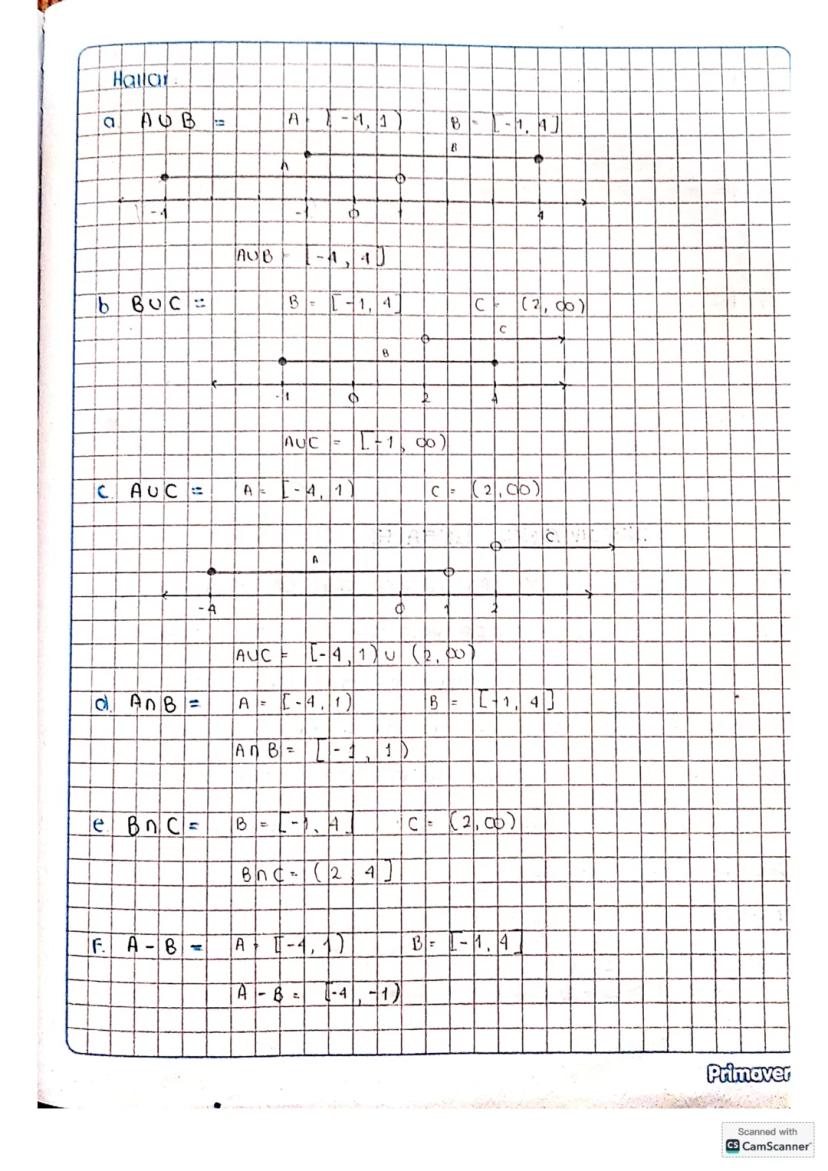 Hallar.
a A∪B = A = [-4, 1) B = [-1, 4]
B
A
-4 -1 0 1 4
A∪B = [-4, 4]
b B∪C = B = [-1, 4] C = (2, ∞)
C
B
-1 0 2 4
A∪C = [-1, ∞)
c. A∪C = A = [-4, 1) C = (2, ∞)
C
A
-4 0 1 2
A∪C = [-4, 1) ∪ (2, ∞)
d. A∩B = A = [-4, 1) B = [-1, 4]
A∩B = [-1, 1)
e. B∩C = B = [-1, 4] C = (2, ∞)
B∩C = (2, 4]
F. A - B = A = [-4, 1) B = [-1, 4]
A - B = [-4, -1)
Primaver
Scanned with
CS CamScanner